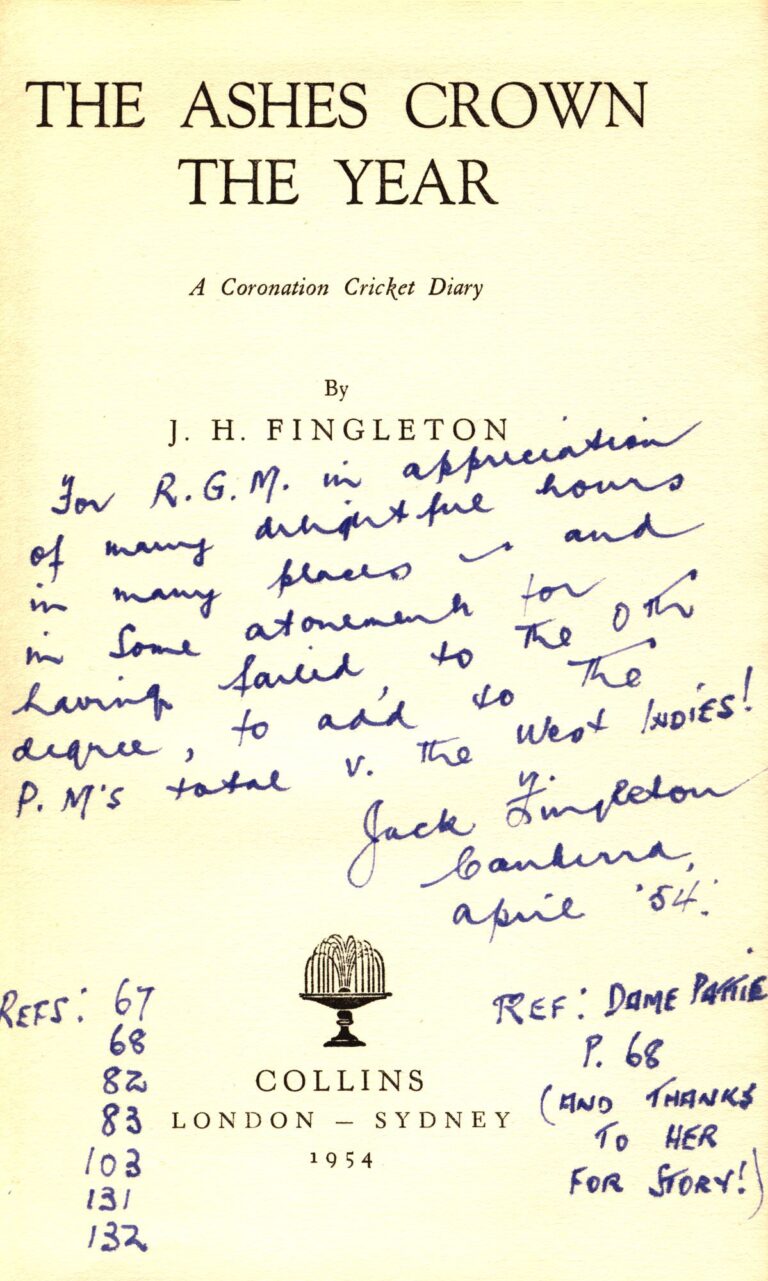 THE ASHES CROWN
THE YEAR
A Coronation Cricket Diary
By
J. H. FINGLETON
For R.G.M. in appreciation
of many delightful hours
in many places – and
in some atonement for
having failed, to the nth
degree, to add to the
P.M's total v. the West INDIES!
Jack Fingleton
Canberra,
April '54.
REFS: 67
68
82
83
103
131
132
REF: DAME PATTIE
P. 68
(AND THANKS
TO HER
FOR STORY!)
COLLINS
LONDON – SYDNEY
1954